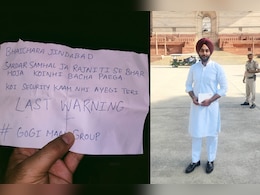 BHAICHARA JINDABAD
SARDAR SAMHAL JA RAJNITI SE BHAR
HOJA KOINHI BACHA PAEGA
KOI SECURITY KAAM NHI AYEGI TERI
LAST WARNING
# GOGI MAAN GROUP